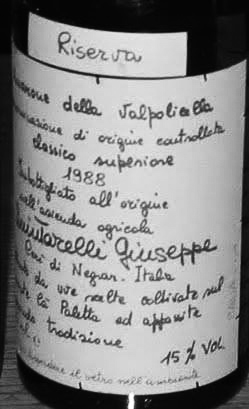 Riserva
della Valpolicella
di origine controllata
classico superiore
1988
Imbottigliato all'origine
dall'azienda agricola
Quintarelli Giuseppe
Cerè di Negrar. Italia
da uve scelte coltivate sul
Monte Cà Paletta ed appassite
tradizione
15% Vol.
disperdere il vetro nell'ambiente